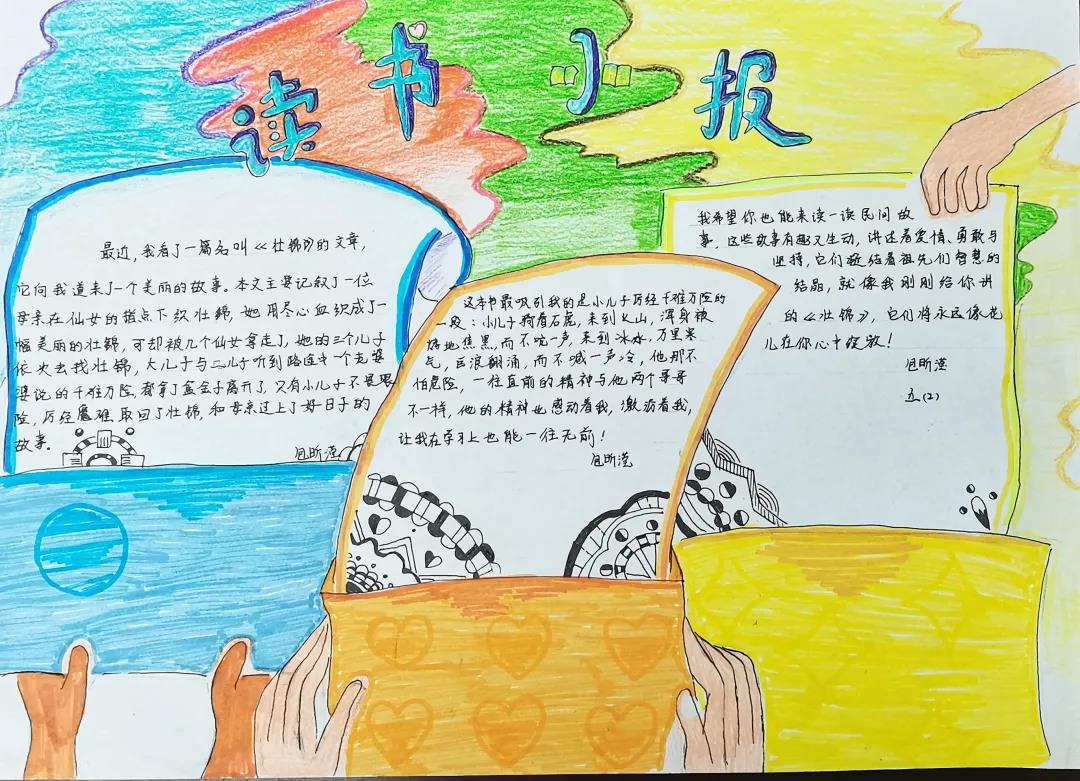 读书小报
最近,我看了一篇名叫《壮锦》的文章,
它向我道来了一个美丽的故事。本文主要记叙了一位
母亲在仙女的指点下织壮锦,她用尽心血织成了一
幅美丽的壮锦,可却被几个仙女拿走了,她的三个儿子
依次去找壮锦,大儿子与二儿子听到路途中一个老婆
婆说的千难万险,都拿了盒金子离开了,又有小儿子不畏艰
险,历经磨难取回了壮锦,和母亲过上了好日子的
故事。
昕滢
这本书最吸引我的是小儿子历经千难万险的
一段:小儿子骑着石虎,来到火山,浑身被
烧地焦黑,而不吭一声,来到冰水,万里寒
气,巨浪翻涌,而不喊一声冷,他那不
怕危险,一往直前的精神与他两个哥哥
不一样,他的精神也感动着我,激励着我,
让我在学习上也能一往无前!
昕滢
我希望你也能来读一读民间故
事,这些故事有趣又生动,讲述着爱情、勇敢与
坚持,它们凝结着祖先们智慧的
结晶,就像我刚刚给你讲
的《壮锦》,它们将永远像花
儿在你心中绽放!
昕滢
五(2)